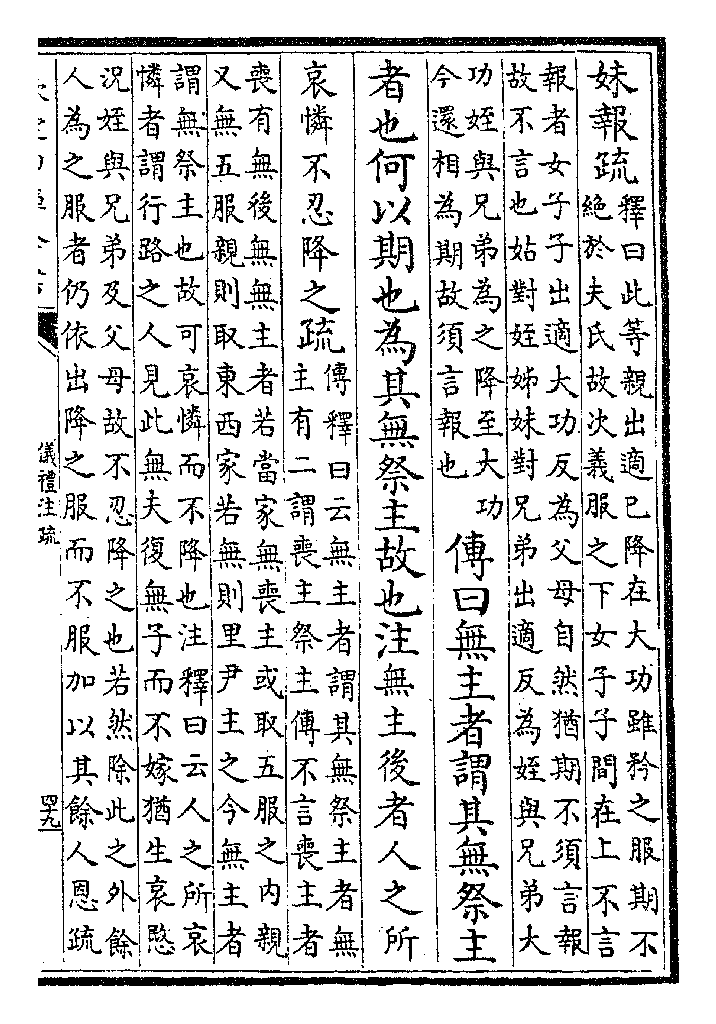 妹報疏釋曰此等親出適已降在大功雖矜之服期不
絶於夫氏故次義服之下女子子間在上不言
報者女子子出適大功反為父母自然猶期不須言報
故不言也姑對姪姊妹對兄弟出適反為姪與兄弟大
功姪與兄弟為之降至大功
今還相為期故須言報也
傳曰無主者謂其無祭主
者也何以期也為其無祭主故也注無主後者人之所
哀憐不忍降之疏傳釋曰云無主者謂其無祭主者無
主有二謂喪主祭主傳不言喪主者
喪有無後無無主者若當家無喪主或取五服之内親
又無五服親則取東西家若無則里尹主之今無主者
謂無祭主也故可哀憐而不降也注釋曰云人之所哀
憐者謂行路之人見此無夫復無子而不嫁猶生哀愍
況姪與兄弟及父母故不忍降之也若然除此之外餘
人為之服者仍依出降之服而不服加以其餘人恩疏
儀禮注疏
四十九